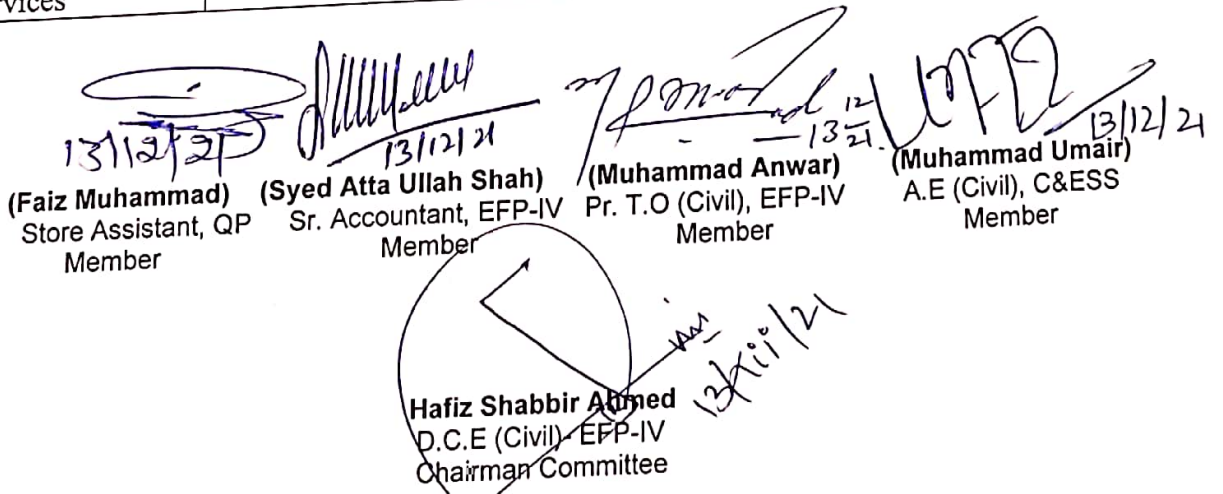 vices
13/12/21
13/12/21
13 12/21
13/12/21
(Faiz Muhammad)
Store Assistant, QP
Member
(Syed Atta Ullah Shah)
Sr. Accountant, EFP-IV
Member
(Muhammad Anwar)
Pr. T.O (Civil), EFP-IV
Member
(Muhammad Umair)
A.E (Civil), C&ESS
Member
13/xii/21
Hafiz Shabbir Ahmed
D.C.E (Civil)- EFP-IV
Chairman Committee